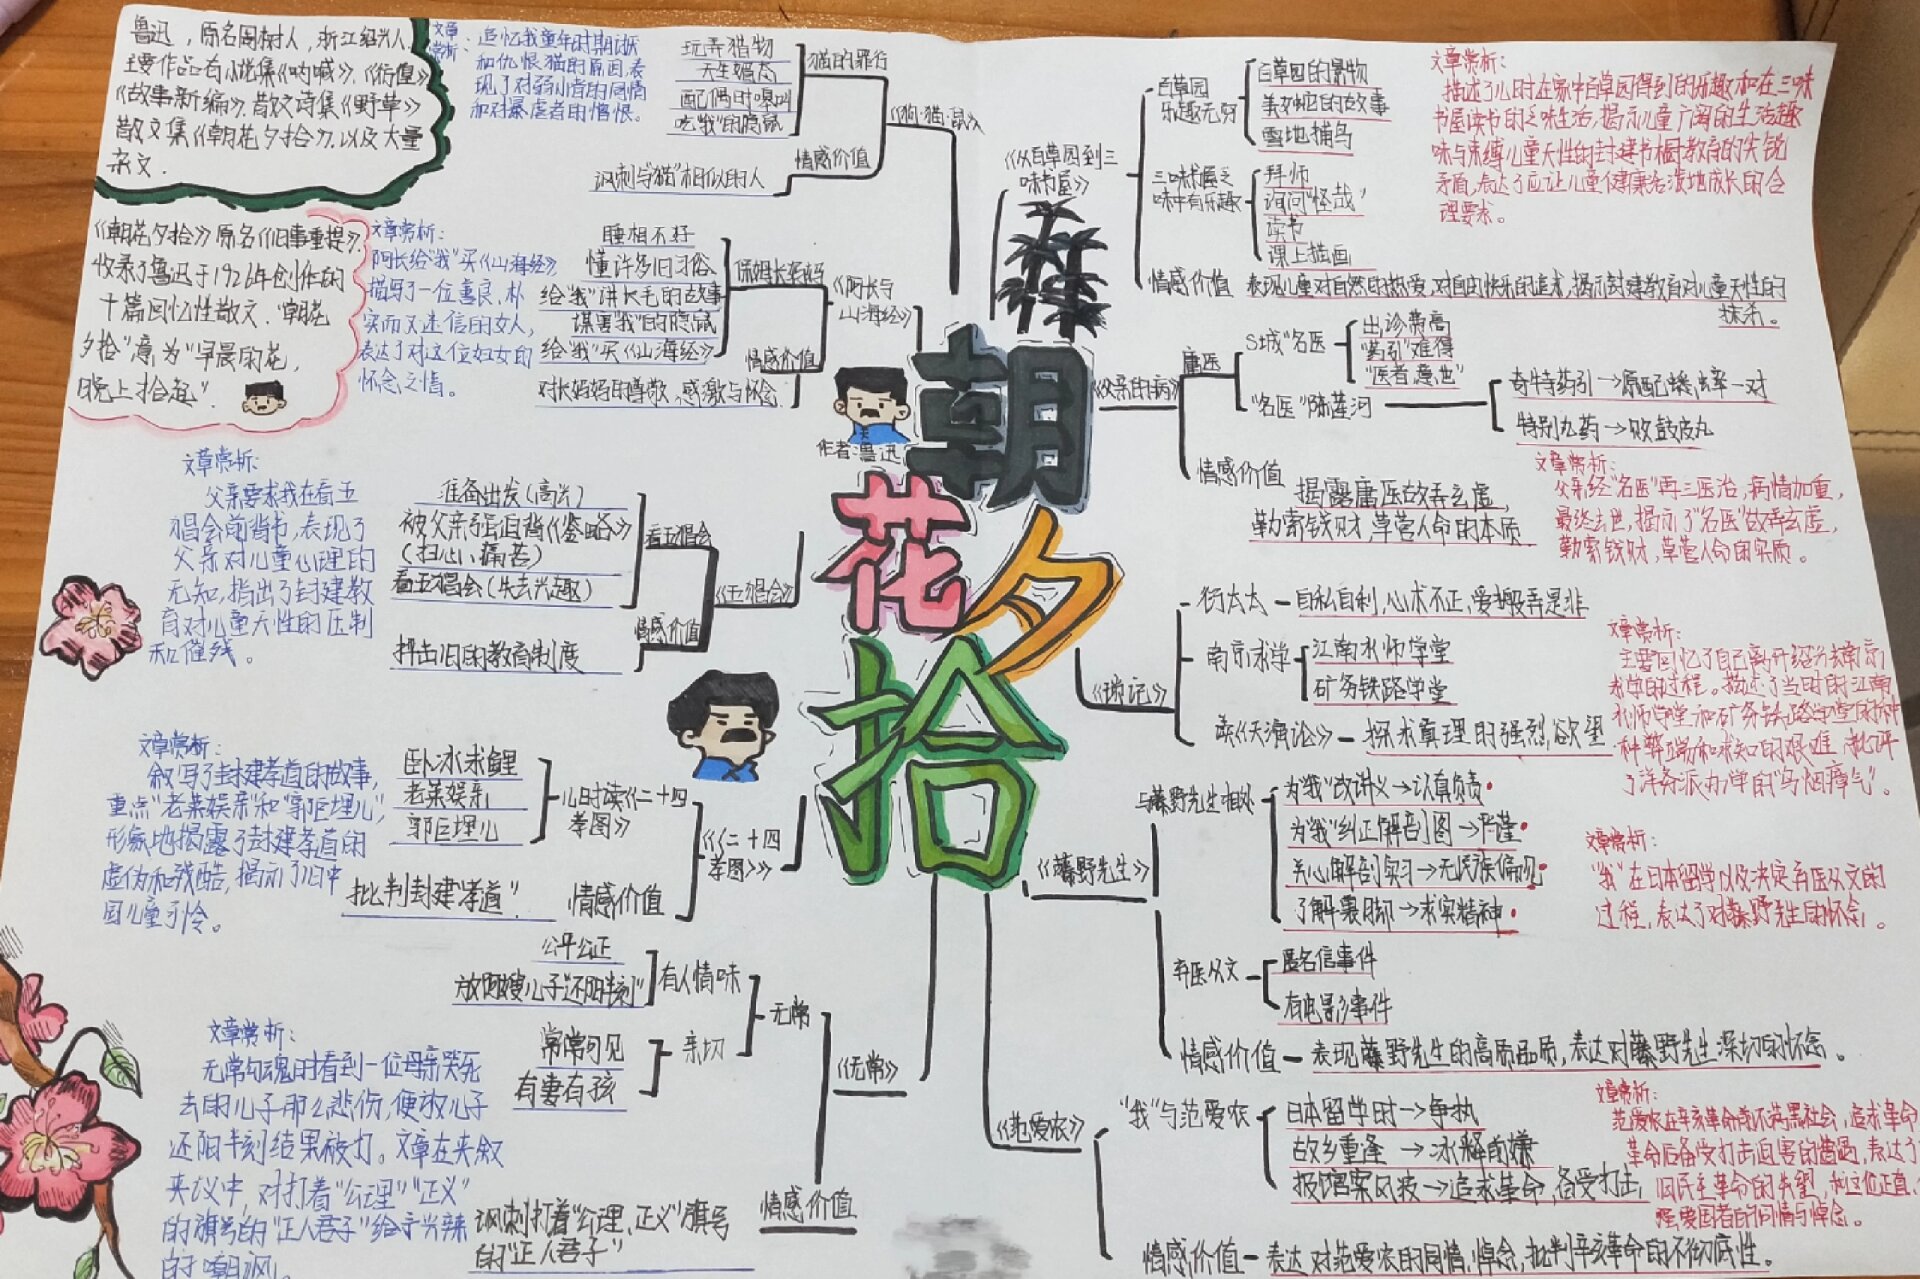 鲁迅，原名周树人，浙江绍兴人，
主要作品有小说集《呐喊》.《彷徨》
《故事新编》.散文诗集《野草》
散文集《朝花夕拾》.以及大量
杂文.
《朝花夕拾》原名《旧事重提》，
收录了鲁迅于1926年创作的
十篇回忆性散文.“朝花
夕拾”意为“早晨的花，
晚上拾起”.
文章
赏析：
追忆我童年时期
和仇恨猫的原因，表
现了对弱小者的同情
和对暴虐者的憎恨。
玩弄猎物
天生媚态
配偶时嚎叫
吃“我”的隐鼠
猫的罪行
《狗·猫·鼠》
情感价值
讽刺与“猫”相似的人
文章赏析：
阿长给“我”买《山海经》
描写了一位善良、朴
实而又迷信的女人，
表达了对这位妇女的
怀念之情。
睡相不好
懂许多旧习俗
给“我”讲长毛的故事
谋害“我”的隐鼠
给“我”买《山海经》
保姆长妈妈
《阿长与
山海经》
情感价值
对长妈妈的尊敬、感激与怀念
文章赏析：
父亲要求我在看五
猖会前背书，表现了
父亲对儿童心理的
无知，指出了封建教
育对儿童天性的压制
和摧残。
准备出发（高兴）
被父亲强迫背《鉴略》
（扫心、痛苦）
看五猖会（失去兴趣）
看五猖会
《五猖会》
情感价值
抨击旧的教育制度
文章赏析：
叙写了封建孝道的故事，
重点“老莱娱亲”和“郭巨埋儿”，
形象地揭露了封建孝道的
虚伪和残酷，揭示了旧中
国儿童可怜。
卧冰求鲤
老莱娱亲
郭巨埋儿
儿时读《二十四
孝图》
《二十四
孝图》
批判封建“孝道”
情感价值
文章赏析：
无常勾魂时看到一位母亲哭死
去的儿子那么悲伤，便放儿子
还阳半刻结果被打。文章在夹叙
夹议中，对打着“公理”“正义”
的旗号的“正人君子”给予兴辣
的嘲讽。
公平公正
放阿嫂儿子“还阳半刻”
有人情味
常常可见
有妻有孩
亲切
无常
《无常》
讽刺打着“公理、正义”旗号
的“正人君子”
情感价值
作者：鲁迅
朝
花
夕
拾
《从百草园到三
味书屋》
百草园
乐趣无穷
百草园的景物
美女蛇的故事
雪地捕鸟
三味书屋之
味中有乐趣
拜师
询问“怪哉”
读书
课上描画
情感价值
表现儿童对自然的热爱，对自由快乐的追求，揭示封建教育对儿童天性的
抹杀。
文章赏析：
描述了儿时在家中百草园得到的乐趣和在三味
书屋读书的乏味生活，揭示儿童广阔的生活趣
味与束缚儿童天性的封建书橱教育的尖锐
矛盾，表达了应让儿童健康活泼地成长的合
理要求。
《父亲的病》
庸医
S城“名医”
出诊费高
“药引”难得
“医者，意也”
“名医”陈莲河
奇特药引→原配蟋蟀一对
特别丸药→败鼓皮丸
情感价值
揭露庸医故弄玄虚，
勒索钱财，草菅人命的本质
文章赏析：
父亲经“名医”再三医治，病情加重，
最终去世，揭示了“名医”故弄玄虚，
勒索钱财，草菅人命的实质。
《琐记》
衍太太－自私自利，心术不正，爱搬弄是非
南京求学
江南水师学堂
矿务铁路学堂
读《天演论》－探求真理的强烈欲望
文章赏析：
主要回忆了自己离开绍兴去南京
求学的过程。描述了当时的江南
水师学堂和矿务铁路学堂的种
种弊端和求知的艰难，批评
了洋务派办学的“乌烟瘴气”。
《藤野先生》
与藤野先生相处
为“我”改讲义→认真负责
为“我”纠正解剖图→严谨
关心解剖实习→无民族偏见
了解裹脚→求实精神
弃医从文
匿名信事件
看电影事件
情感价值－表现藤野先生的高质品质，表达对藤野先生深切的怀念。
文章赏析：
“我”在日本留学以及决定弃医从文的
过程，表达了对藤野先生的怀念。
《范爱农》
“我”与范爱农
日本留学时→争执
故乡重逢→冰释前嫌
报馆案风波→追求革命，备受打击
情感价值－表达对范爱农的同情、悼念，批判辛亥革命的不彻底性。
文章赏析：
范爱农在辛亥革命前不满黑社会，追求革命
革命后备受打击迫害的遭遇，表达了
旧民主革命的失望，和这位正直、
强爱国者的同情与悼念。